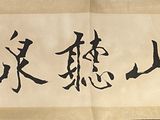 山聽泉